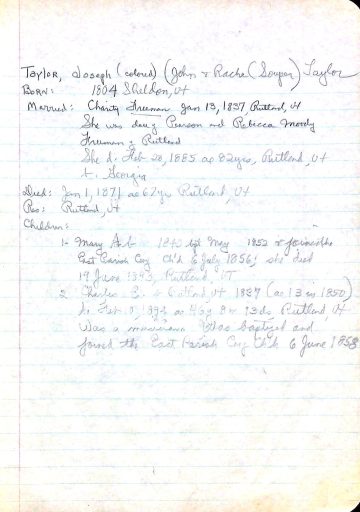 Taylor, Joseph (colored) (John & Rachel (Souper) Taylor
Born: 1804 Sheldon, Vt
Married: Charity Freeman Jan 13, 1837 Rutland, Vt
She was daug Pearson and Rebecca Moody
Freeman of Rutland
She d. Feb 28, 1885 ae 82yrs, Rutland, Vt
b. Georgia
Died: Jan 1, 1871 ae 67yr Rutland, Vt
Res: Rutland, Vt
Children:
1- Mary A. b. 1840 bpt May 1852 & joined the
East Parish Cong Ch'd 6 July 1856; she died
19 June 1893, Rutland, VT
2. Charles E. b Rutland Vt 1837 (ae 13 in 1850)
d. Feb. 8, ae 8m 13ds, Rutland Vt
Was a musician Was baptized and
joined the East Parish Cong Ch'd 6 June 1858